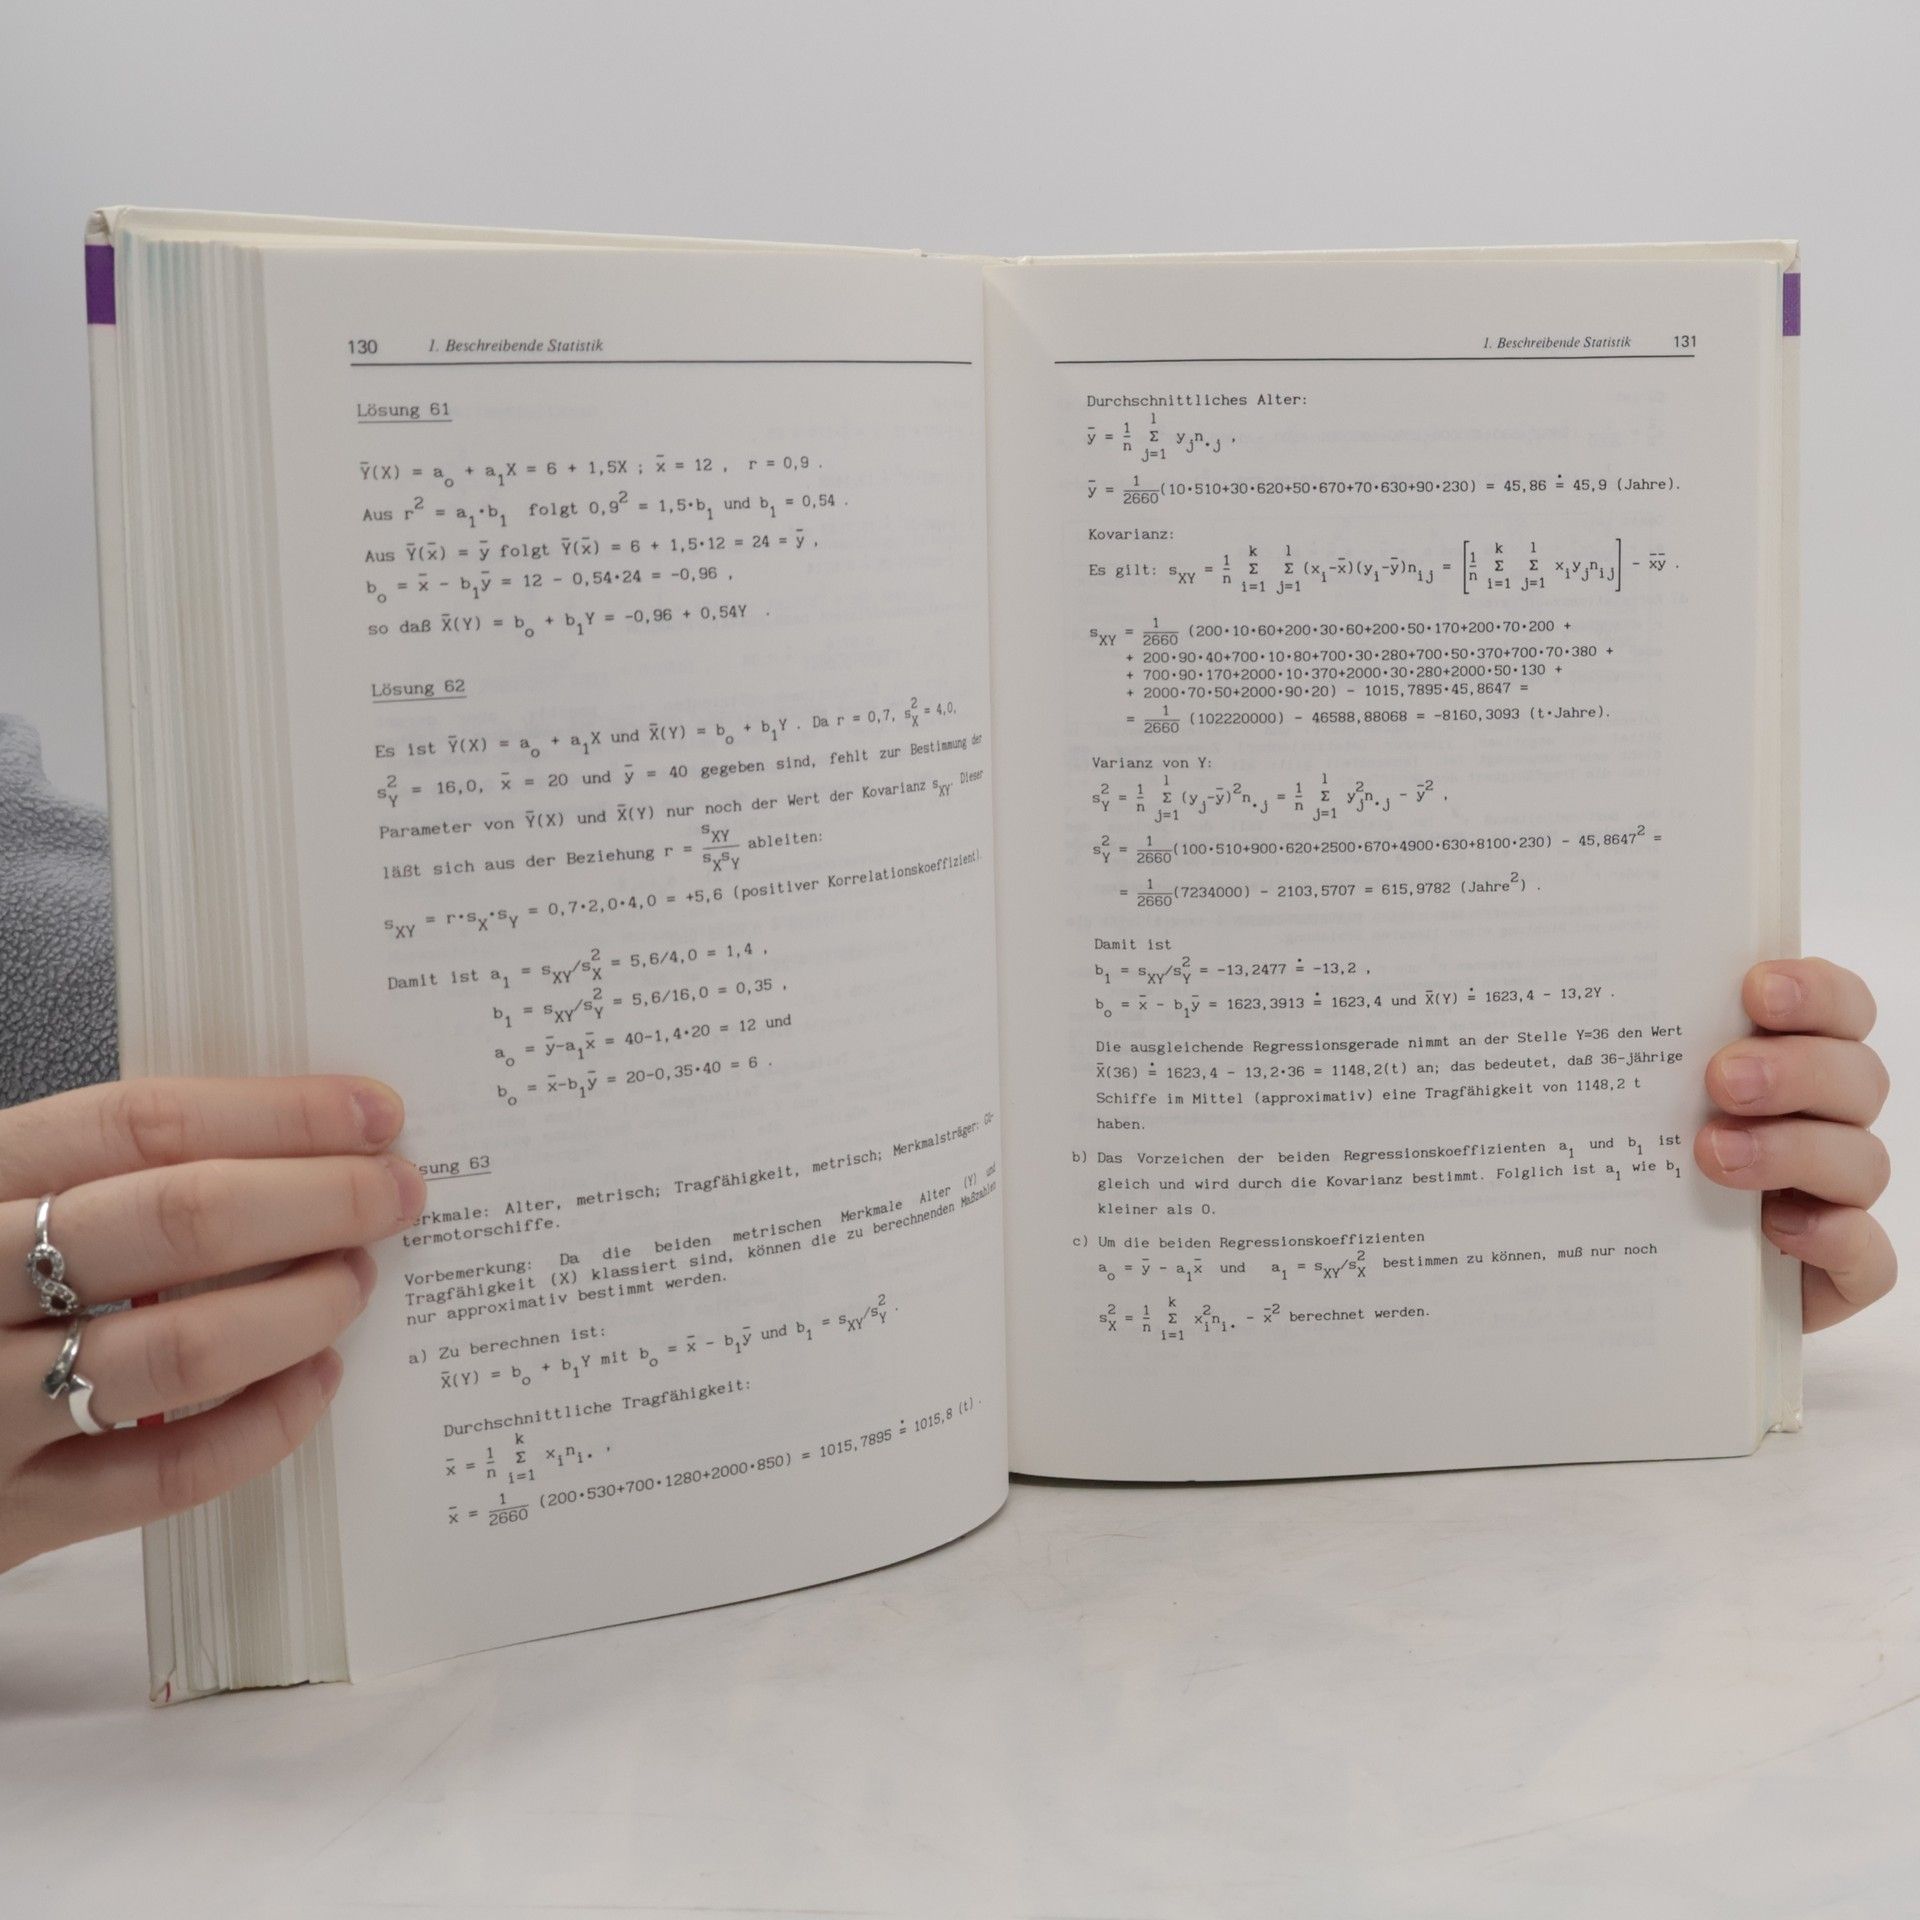 130 1. Beschreibende Statistik
Lösung 61
Ȳ(X) = a₀ + a₁X = 6 + 1,5X ; x̄ = 12 , r = 0,9 .
Aus r² = a₁·b₁ folgt 0,9² = 1,5·b₁ und b₁ = 0,54 .
Aus Ȳ(x̄) = ȳ folgt Ȳ(x̄) = 6 + 1,5·12 = 24 = ȳ ,
b₀ = x̄ - b₁ȳ = 12 - 0,54·24 = -0,96 ,
so daß X̄(Y) = b₀ + b₁Y = -0,96 + 0,54Y .
Lösung 62
Es ist Ȳ(X) = a₀ + a₁X und X̄(Y) = b₀ + b₁Y . Da r = 0,7, s²_X = 4,0,
s²_Y = 16,0, x̄ = 20 und ȳ = 40 gegeben sind, fehlt zur Bestimmung der
Parameter von Ȳ(X) und X̄(Y) nur noch der Wert der Kovarianz s_XY. Dieser
läßt sich aus der Beziehung r = s_XY/(s_X s_Y) ableiten:
s_XY = r·s_X·s_Y = 0,7·2,0·4,0 = +5,6 (positiver Korrelationskoeffizient).
Damit ist a₁ = s_XY/s²_X = 5,6/4,0 = 1,4 ,
b₁ = s_XY/s²_Y = 5,6/16,0 = 0,35 ,
a₀ = ȳ-a₁x̄ = 40-1,4·20 = 12 und
b₀ = x̄-b₁ȳ = 20-0,35·40 = 6 .
sung 63
erkmale: Alter, metrisch; Tragfähigkeit, metrisch; Merkmalsträger: Gü-
termotorschiffe.
Vorbemerkung: Da die beiden metrischen Merkmale Alter (Y) und
Tragfähigkeit (X) klassiert sind, können die zu berechnenden Maßzahlen
nur approximativ bestimmt werden.
a) Zu berechnen ist:
X̄(Y) = b₀ + b₁Y mit b₀ = x̄ - b₁ȳ und b₁ = s_XY/s²_Y .
Durchschnittliche Tragfähigkeit:
x̄ = 1/n Σ_{i=1}^{k} x_i n_i. ,
x̄ = 1/2660 (200·530+700·1280+2000·850) = 1015,7895 ≐ 1015,8 (t) .
1. Beschreibende Statistik 131
Durchschnittliches Alter:
ȳ = 1/n Σ_{j=1}^{l} y_j n_.j ,
ȳ = 1/2660(10·510+30·620+50·670+70·630+90·230) = 45,86 ≐ 45,9 (Jahre).
Kovarianz:
Es gilt: s_XY = 1/n Σ_{i=1}^{k} Σ_{j=1}^{l} (x_i-x̄)(y_i-ȳ)n_ij = [1/n Σ_{i=1}^{k} Σ_{j=1}^{l} x_i y_j n_ij] - x̄ȳ .
s_XY = 1/2660 (200·10·60+200·30·60+200·50·170+200·70·200 +
+ 200·90·40+700·10·80+700·30·280+700·50·370+700·70·380 +
+ 700·90·170+2000·10·370+2000·30·280+2000·50·130 +
+ 2000·70·50+2000·90·20) - 1015,7895·45,8647 =
= 1/2660 (102220000) - 46588,88068 = -8160,3093 (t·Jahre).
Varianz von Y:
s²_Y = 1/n Σ_{j=1}^{l} (y_j-ȳ)²n_.j = 1/n Σ_{j=1}^{l} y²_j n_.j - ȳ² ,
s²_Y = 1/2660(100·510+900·620+2500·670+4900·630+8100·230) - 45,8647² =
= 1/2660(7234000) - 2103,5707 = 615,9782 (Jahre²) .
Damit ist
b₁ = s_XY/s²_Y = -13,2477 ≐ -13,2 ,
b₀ = x̄ - b₁ȳ = 1623,3913 ≐ 1623,4 und X̄(Y) ≐ 1623,4 - 13,2Y .
Die ausgleichende Regressionsgerade nimmt an der Stelle Y=36 den Wert
X̄(36) ≐ 1623,4 - 13,2·36 = 1148,2(t) an; das bedeutet, daß 36-jährige
Schiffe im Mittel (approximativ) eine Tragfähigkeit von 1148,2 t
haben.
b) Das Vorzeichen der beiden Regressionskoeffizienten a₁ und b₁ ist
gleich und wird durch die Kovarianz bestimmt. Folglich ist a₁ wie b₁
kleiner als 0.
c) Um die beiden Regressionskoeffizienten
a₀ = ȳ - a₁x̄ und a₁ = s_XY/s²_X bestimmen zu können, muß nur noch
s²_X = 1/n Σ_{i=1}^{k} x²_i n_i. - x̄² berechnet werden.